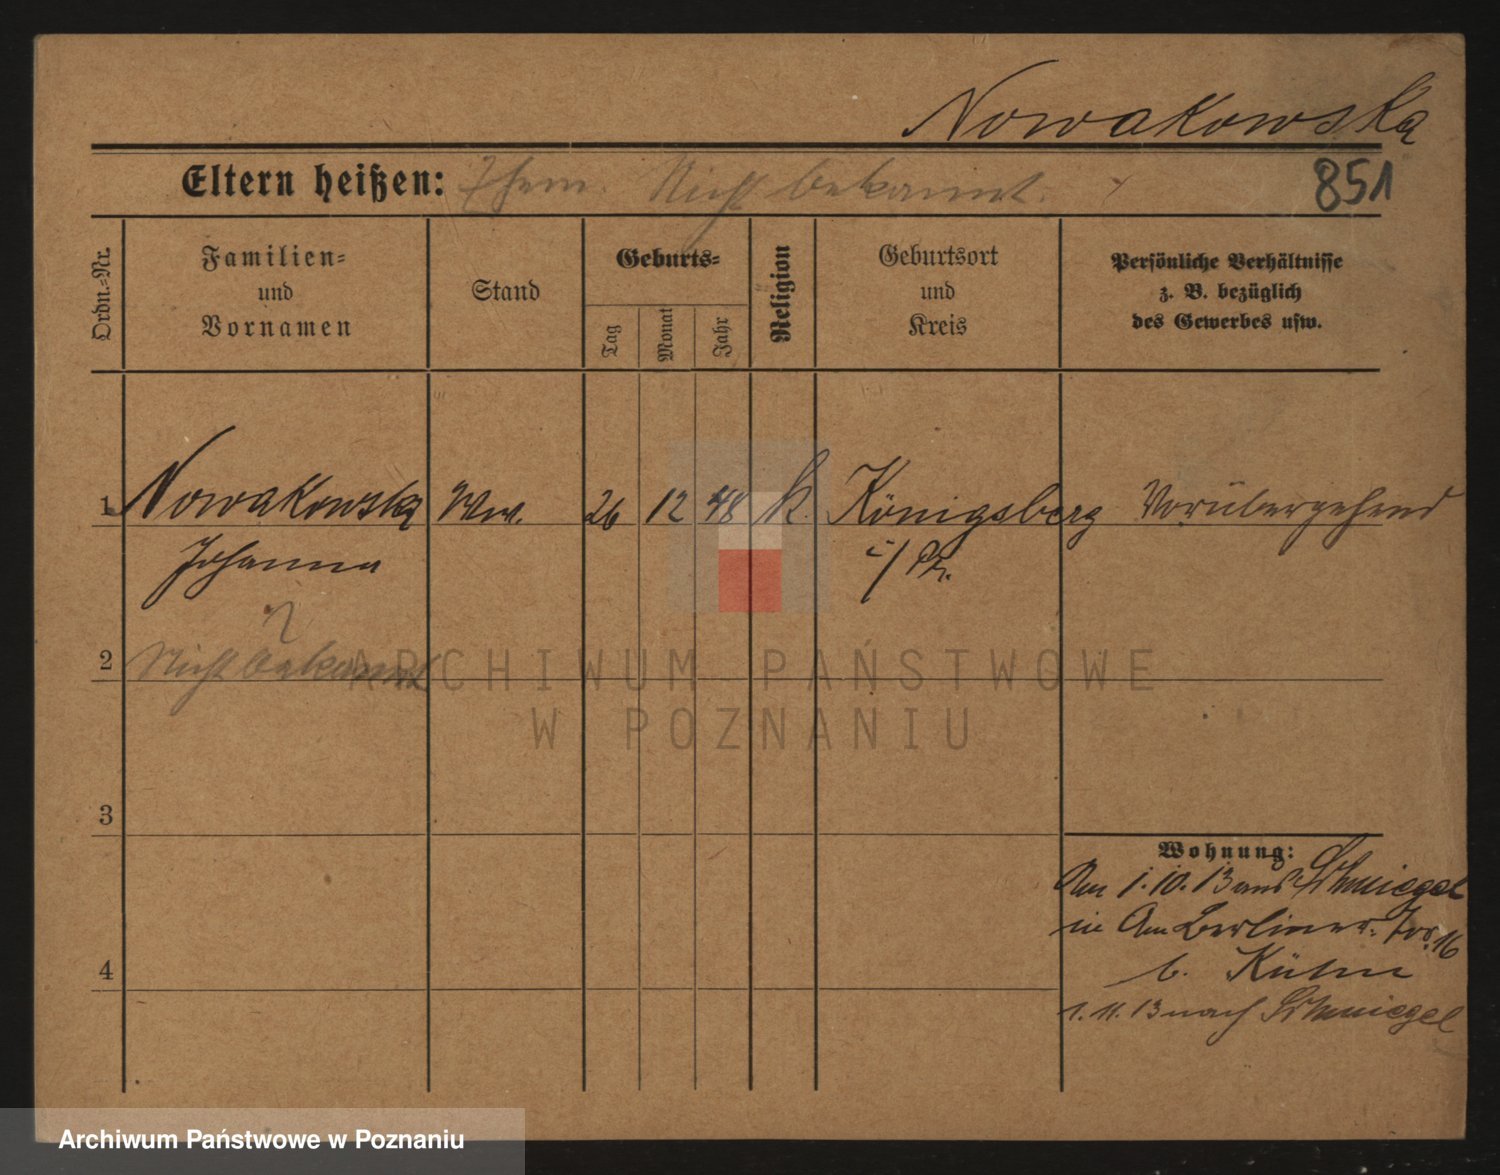 Nowakowska
Eltern heißen: Ehem. Nicht bekannt.
851
Ordn.-Nr.
Familien-
und
Vornamen
Stand
Geburts-
Tag
Monat
Jahr
Religion
Geburtsort
und
Kreis
Persönliche Verhältnisse
z. B. bezüglich
des Gewerbes usw.
1 Nowakowska Ww. 26 12 48 k. Königsberg Vorübergehend
Johanna i/Pr.
2 Nicht bekannt
ARCHIWUM PAŃSTWOWE
W POZNANIU
3
Wohnung:
Am 1.10.13 aus Schmiegel
in Am Berliner-Tor. 16
4
b. Kühn
1.11.13 nach Schmiegel
Archiwum Państwowe w Poznaniu